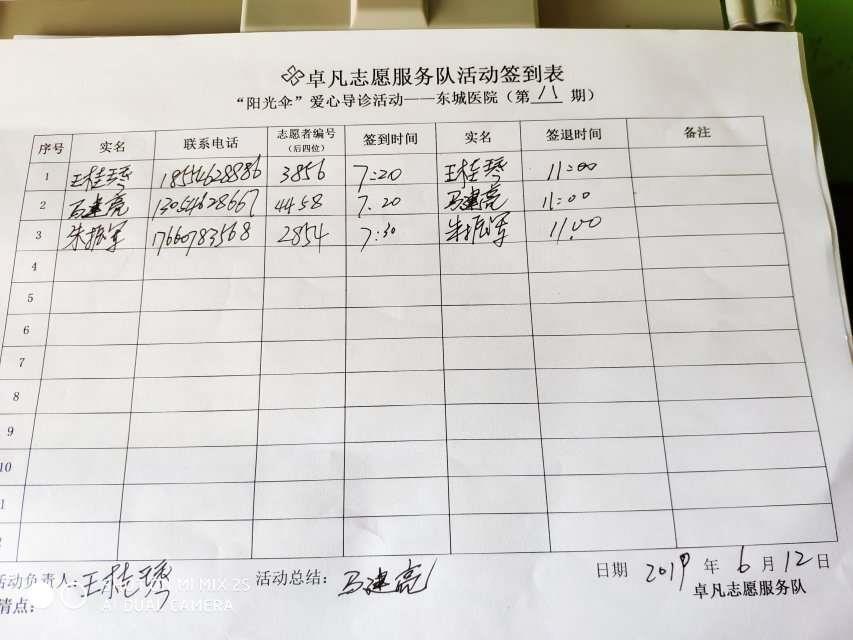 卓凡志愿服务队活动签到表
“阳光伞”爱心导诊活动——东城医院（第 八 期）
序号 实名 联系电话 志愿者编号（后四位） 签到时间 实名 签退时间 备注
1 王桂琴 18554628886 3856 7:20 王桂琴 11:00
2 马建亮 13054628667 4458 7.20 马建亮 11:00
3 朱振军 17660783568 2854 7:30 朱振军 11.00
4
5
6
7
8
9
10
活动负责人：王桂琴 活动总结：马建亮 日期 2019 年 6 月 12 日
卓凡志愿服务队
MI MIX 2S
AI DUAL CAMERA